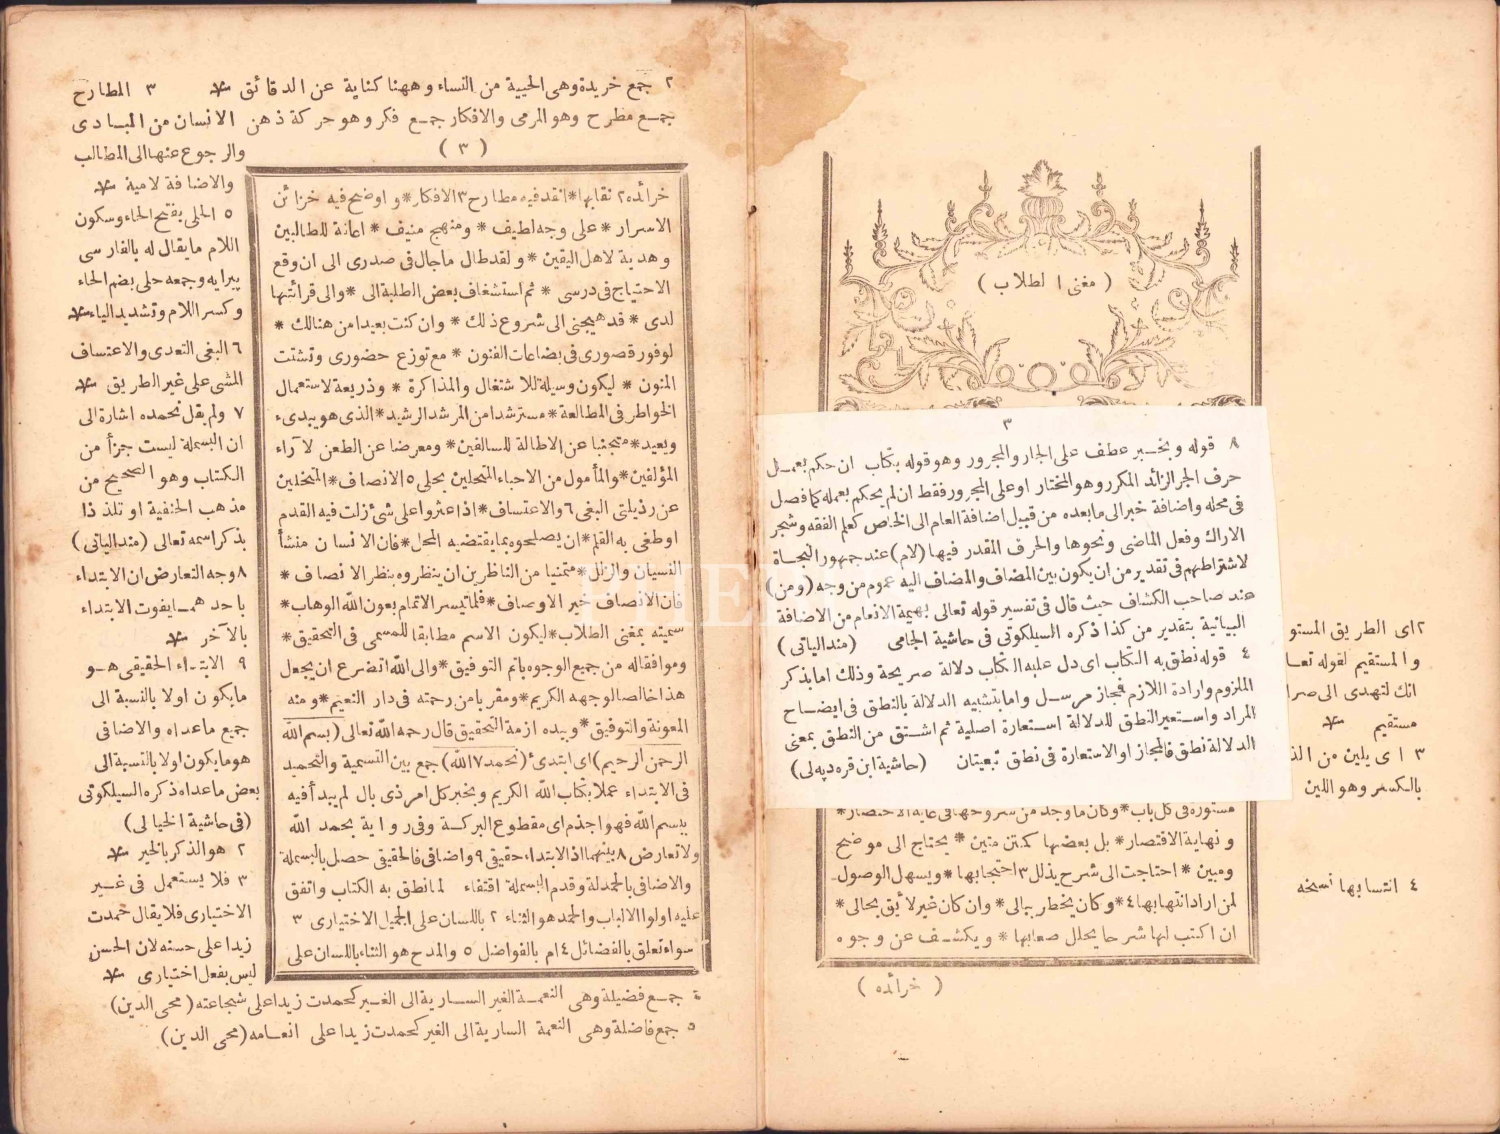 ( مغنى الطلاب )
٣
٨ قوله وبخبر عطف على الجار والمجرور وهو قوله بكتاب ان حكم بعمل
حرف الجر الزائد المكرر وهو المختار او على المجرور فقط ان لم يحكم بعمله كما فصل
فى محله واضافة خبر الى ما بعده من قبيل اضافة العام الى الخاص كعلم الفقه وشجر
الاراك وفعل الماضى ونحوها والحرف المقدر فيها (لام) عند جمهور النحاة
لاشتراطهم فى تقدير من ان يكون بين المضاف والمضاف اليه عموم من وجه (ومن)
عند صاحب الكشاف حيث قال فى تفسير قوله تعالى بهيمة الانعام من الاضافة
البيانية بتقدير من كذا ذكره السيلكوتى فى حاشية الجامى (منداليانى)
٤ قوله نطق به الكتاب اى دل عليه الكتاب دلالة صريحة وذلك اما بذكر
الملزوم وارادة اللازم فمجاز مرسل واما بتشبيه الدلالة بالنطق فى ايضاح
المراد واستعير النطق للدلالة استعارة اصلية ثم اشتق من النطق بمعنى
الدلالة نطق فالمجاز او الاستعارة فى نطق تبعيتان (حاشية ابن قره دپه لى)
مستورة فى كل باب * وكان ما وجد من شروحها فى غاية الاختصار *
ونهاية الاقتصار * بل بعضها كمتن متين * يحتاج الى موضح
ومبين * احتاجت الى شرح يذلل ٣ احتجابها * ويسهل الوصول
لمن اراد انتهابها ٤ * وكان يخطر ببالى * وان كان غير لائق بحالى *
ان اكتب لها شرحا يحلل صعابها * ويكشف عن وجوه
( خرائده )
٢ اى الطريق المستو
والمستقيم لقوله تعا
انك لتهدى الى صرا
مستقيم *
٣ اى يلين من الذ
بالكسر وهو اللين
٤ انتسابها نسخه
٢ جمع خريدة وهى الحيية من النساء وههنا كناية عن الدقائق * ٣ المطارح
جمع مطرح وهو المرمى والافكار جمع فكر وهو حركة ذهن الانسان من المبادى
والرجوع عنها الى المطالب
( ٣ )
والاضافة لامية *
٥ الحلى بفتح الحاء وسكون
اللام ما يقال له بالفارسى
پيرايه وجمعه حلى بضم الحاء
وكسر اللام وتشديد الياء *
٦ البغى التعدى والاعتساف
المشى على غير الطريق *
٧ ولم يقل نحمده اشارة الى
ان البسملة ليست جزأ من
الكتاب وهو الصحيح من
مذهب الحنفية او تلذذا
بذكر اسمه تعالى (منداليانى)
٨ وجه التعارض ان الابتداء
باحدهما يفوت الابتداء
بالآخر *
٩ الابتداء الحقيقى هو
ما يكون اولا بالنسبة الى
جميع ما عداه والاضافى
هو ما يكون اولا بالنسبة الى
بعض ما عداه ذكره السيلكوتى
(فى حاشية الخيالى)
٢ هو الذكر بالخير *
٣ فلا يستعمل فى غير
الاختيارى فلا يقال حمدت
زيدا على حسنه لان الحسن
ليس بفعل اختيارى *
خرائده ٢ نقابها * انقد فيه مطارح ٣ الافكار * واوضح فيه خزائن
الاسرار * على وجه لطيف * ومنهج منيف * اعانة للطالبين
وهدية لاهل اليقين * ولقد طال ما جال فى صدرى الى ان وقع
الاحتياج فى درسى * ثم استشغاف بعض الطلبة الى * والى قرائتها
لدى * قد هيجنى الى شروع ذلك * وان كنت بعيدا من هنالك *
لوفور قصورى فى بضاعات الفنون * مع توزع حضورى وتشتت
المنون * ليكون وسيلة للاشتغال والمذاكرة * وذريعة لاستعمال
الخواطر فى المطالعة * مسترشدا من المرشد الرشيد * الذى هو يبدىء
ويعيد * متجنبا عن الاطالة للسالفين * ومعرضا عن الطعن لآراء
المؤلفين * والمأمول من الاحباء المتحلين بحلى ٥ الانصاف * المتخلين
عن رذيلتى البغى ٦ والاعتساف * اذا عثروا على شئ زلت فيه القدم
او طغى به القلم * ان يصلحوه بما يقتضيه المحل * فان الانسان منشأ
النسيان والزلل * متمنيا من الناظرين ان ينظروه بنظر الانصاف *
فان الانصاف خير الاوصاف * فلما تيسر الاتمام بعون الله الوهاب *
سميته بمغنى الطلاب * ليكون الاسم مطابقا للمسمى فى التحقيق *
وموافقا له من جميع الوجوه باتم التوفيق * والى الله اتضرع ان يجعل
هذا خالصا لوجهه الكريم * ومقربا من رحمته فى دار النعيم * ومنه
المعونة والتوفيق * وبيده ازمة التحقيق قال رحمه الله تعالى (بسم الله
الرحمن الرحيم) اى ابتدئ (نحمد ٧ الله) جمع بين التسمية والتحميد
فى الابتداء عملا بكتاب الله الكريم وبخبر كل امر ذى بال لم يبدأ فيه
ببسم الله فهو اجذم اى مقطوع البركة وفى رواية بحمد الله
ولا تعارض ٨ بينهما اذ الابتداء حقيقى ٩ واضافى فالحقيقى حصل بالبسملة
والاضافى بالحمدلة وقدم البسملة اقتفاء لما نطق به الكتاب واتفق
عليه اولوا الالباب والحمد هو الثناء ٢ باللسان على الجميل الاختيارى ٣
سواء تعلق بالفضائل ٤ ام بالفواضل ٥ والمدح هو الثناء باللسان على
٤ جمع فضيلة وهى النعمة الغير السارية الى الغير كحمدت زيدا على شجاعته (محى الدين)
٥ جمع فاضلة وهى النعمة السارية الى الغير كحمدت زيدا على انعامه (محى الدين)